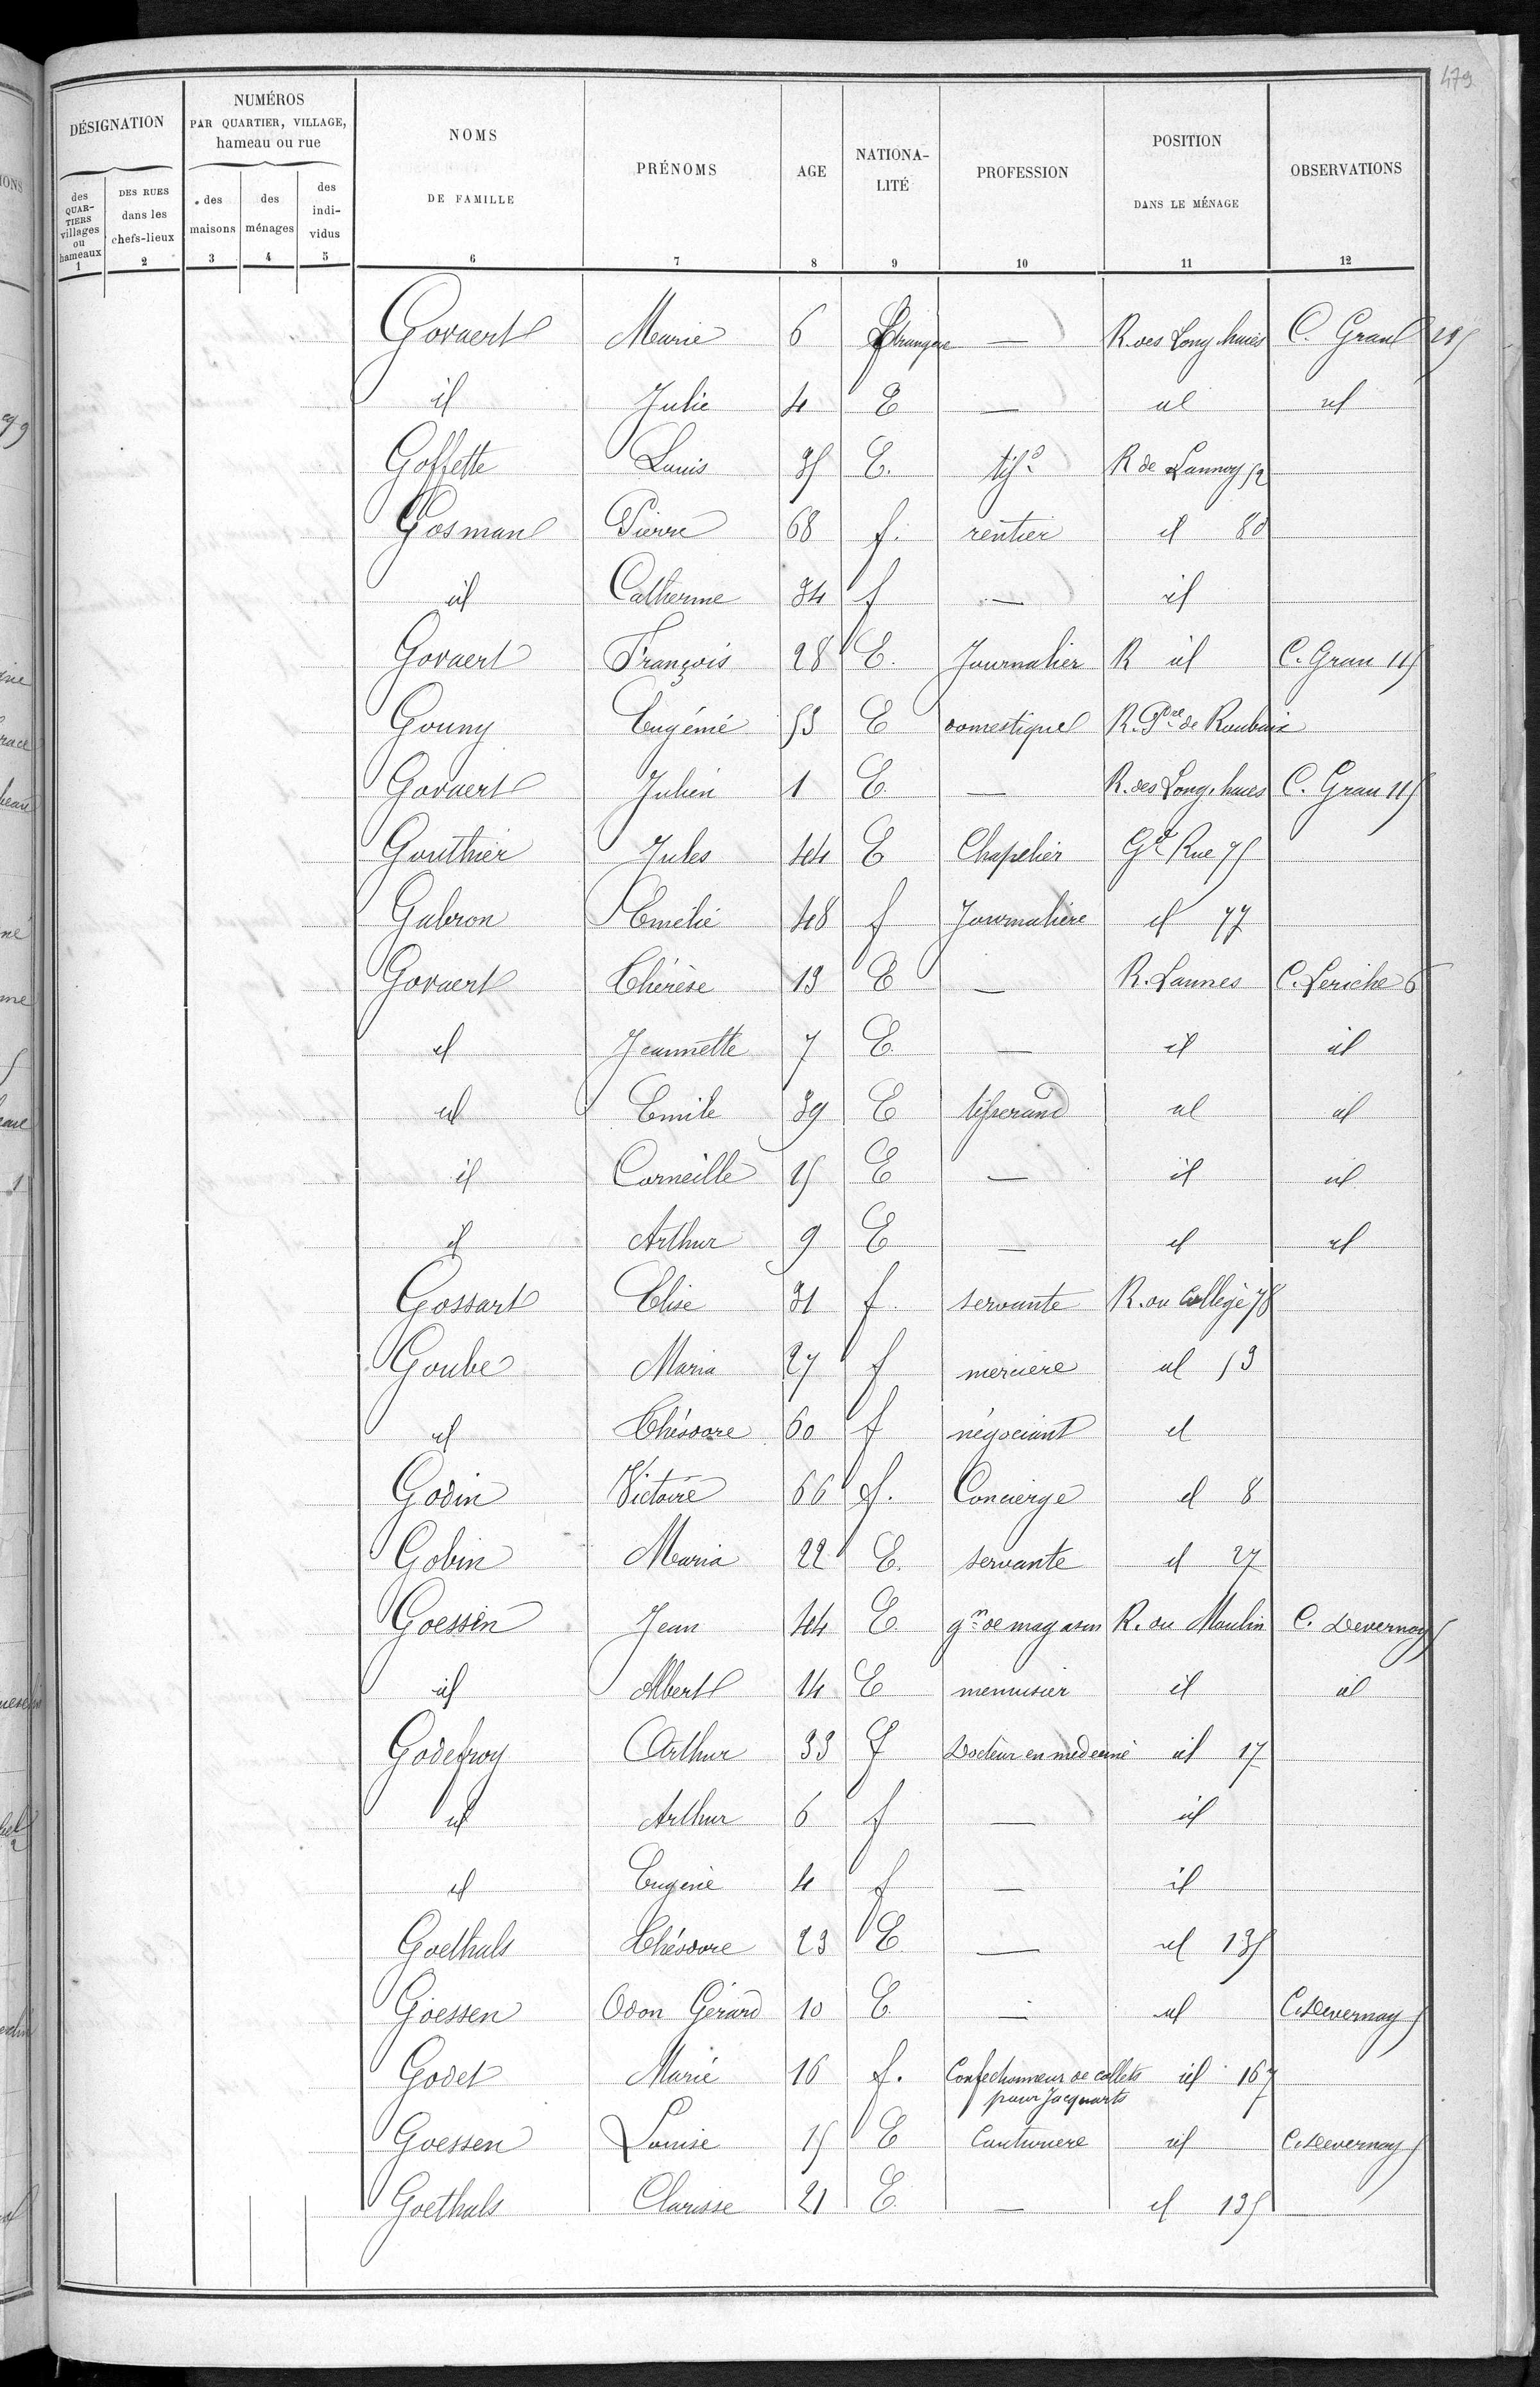 479
DÉSIGNATION
NUMÉROS
PAR QUARTIER, VILLAGE,
hameau ou rue
NOMS
DE FAMILLE
PRÉNOMS
AGE
NATIONA-
LITÉ
PROFESSION
POSITION
DANS LE MÉNAGE
OBSERVATIONS
des
QUAR-
TIERS
villages
ou
hameaux
DES RUES
dans les
chefs-lieux
des
maisons
des
ménages
des
indi-
vidus
1 2 3 4 5 6 7 8 9 10 11 12
Govaert Marie 6 Etrangère — R. des Long. haies C. Grau 115
id Julie 4 E — id id
Goffette Louis 35 E. tisd R de Lannoy 52
Gosman Pierre 68 f. rentier id 80
id Catherine 34 f — id
Govaert François 28 E. Journalier R id C. Grau 115
Gouny Eugénie 53 E domestique R. Pvre de Roubaix
Govaert Julien 1 E. — R. des Long. haies C. Grau 115
Gouthier Jules 44 E Chapelier Gde Rue 75
Gabron Emélie 48 f Journalière id 77
Govaert Thérèse 13 E — R. Lannes C. Leriche 6
id Jeannette 7 E. — id id
id Emile 39 E tisserand id id
id Corneille 15 E — id id
id Arthur 9 E — id id
Gossart Elise 31 f. servante R. du Collège 78
Goube Maria 27 f mercière id 53
id Théodore 60 f négociant id
Godin Victoire 66 f. Concierge id 8
Gobin Maria 22 E. servante id 27
Goessin Jean 44 E. gn de magasin R. du Moulin C. Devernay 5
id Albert 14 E menuisier id id
Godefroy Arthur 33 f Docteur en médecine id 17
id Arthur 6 f — id
id Eugénie 4 f — id
Goethals Théodore 23 E — id 135
Goessen Odon Gérard 10 E — id C. Devernay 5
Godet Marie 16 f. Confectionneur de collets id 167
pour Jacquarts
Goessen Louise 15 E Couturière id C. Devernay 5
Goethals Clarisse 21 E — id 135